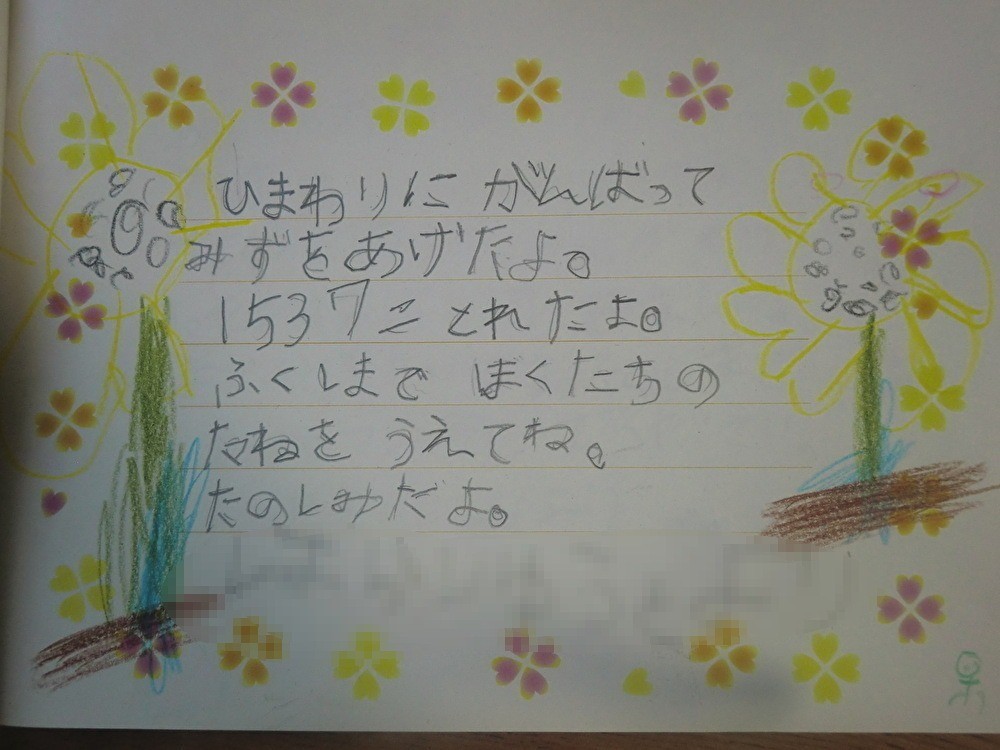 ひまわりに がんばって
みずをあげだよ。
1537こ とれたよ。
ふくしまで ぼくたちの
たねを うえてね。
たのしみだよ。